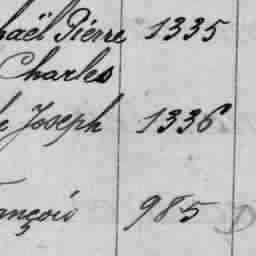 haël Pierre 1335
Charles
Joseph 1336
ançois 985